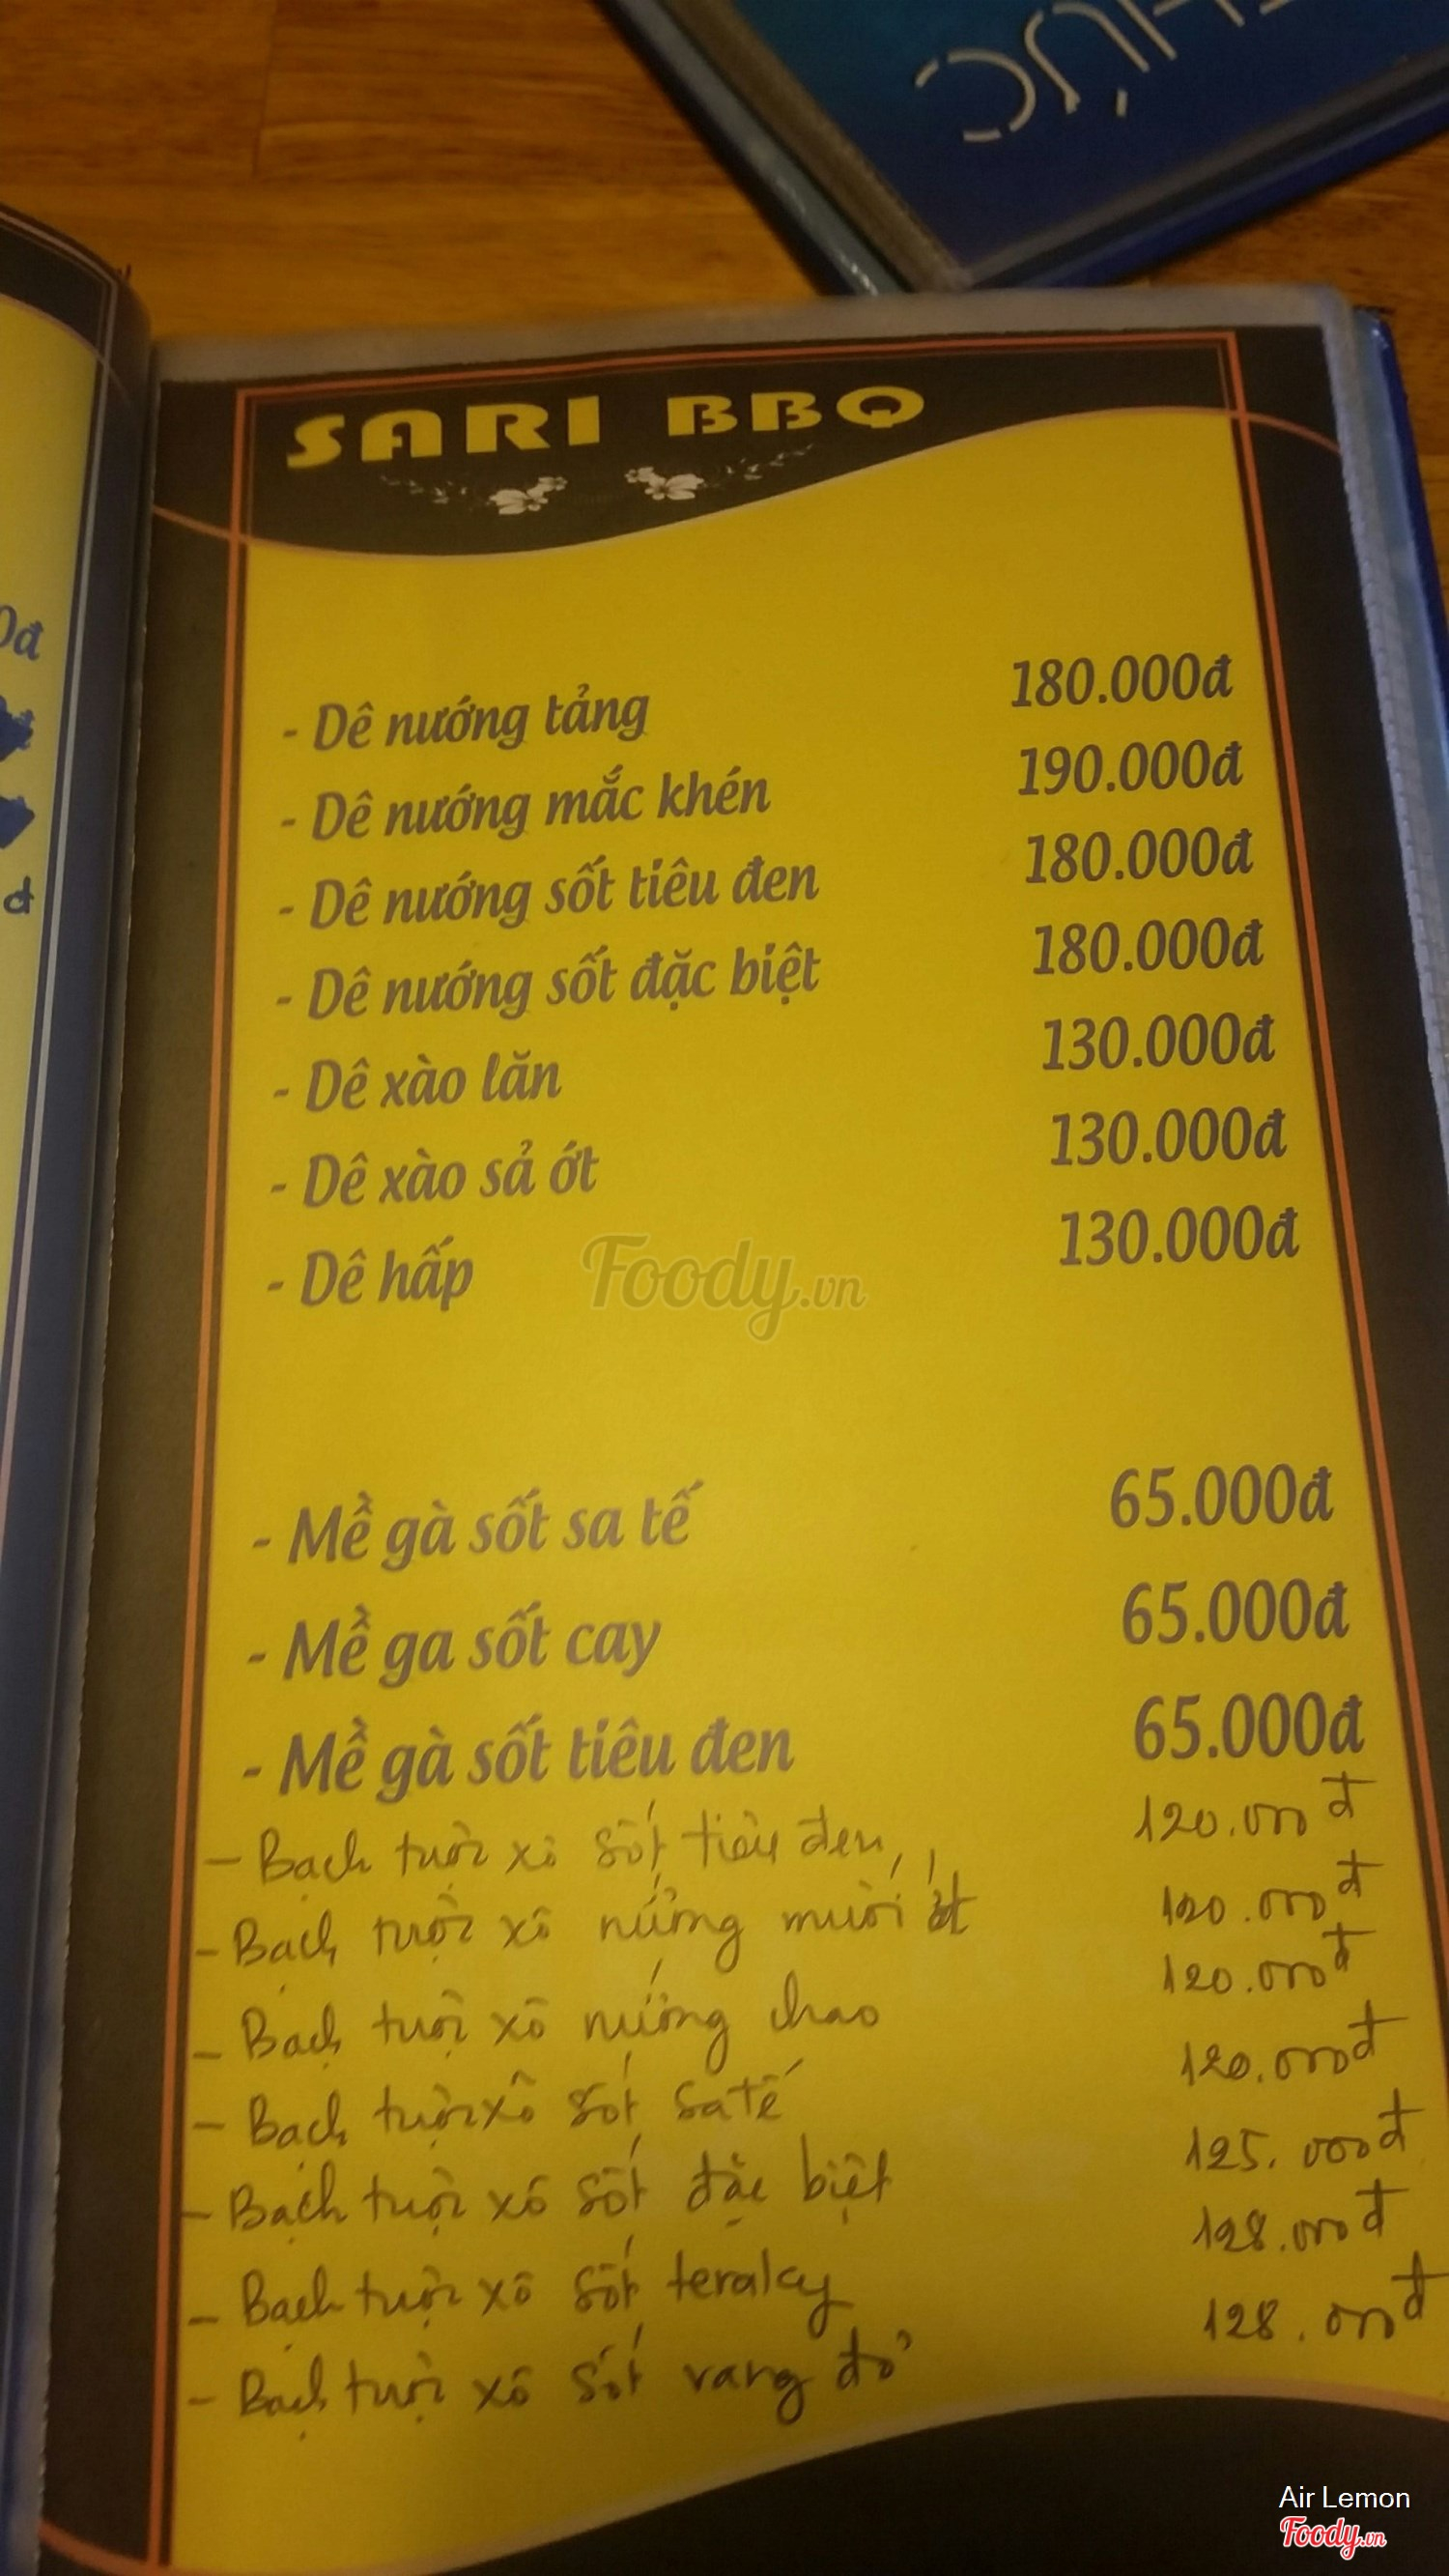 THỰC
SARI BBQ
0đ
đ
- Dê nướng tảng 180.000đ
- Dê nướng mắc khén 190.000đ
- Dê nướng sốt tiêu đen 180.000đ
- Dê nướng sốt đặc biệt 180.000đ
- Dê xào lăn 130.000đ
- Dê xào sả ớt 130.000đ
- Dê hấp 130.000đ
Foody.vn
- Mề gà sốt sa tế 65.000đ
- Mề ga sốt cay 65.000đ
- Mề gà sốt tiêu đen 65.000đ
- Bạch tuộc xô sốt tiêu đen 120.000đ
- Bạch tuộc xô nướng muối ớt 120.000đ
- Bạch tuộc xô nướng chao 120.000đ
- Bạch tuộc xô sốt sa tế 120.000đ
- Bạch tuộc xô sốt đặc biệt 125.000đ
- Bạch tuộc xô sốt teraky 128.000đ
- Bạch tuộc xô sốt vang đỏ 128.000đ
Air Lemon
Foody.vn